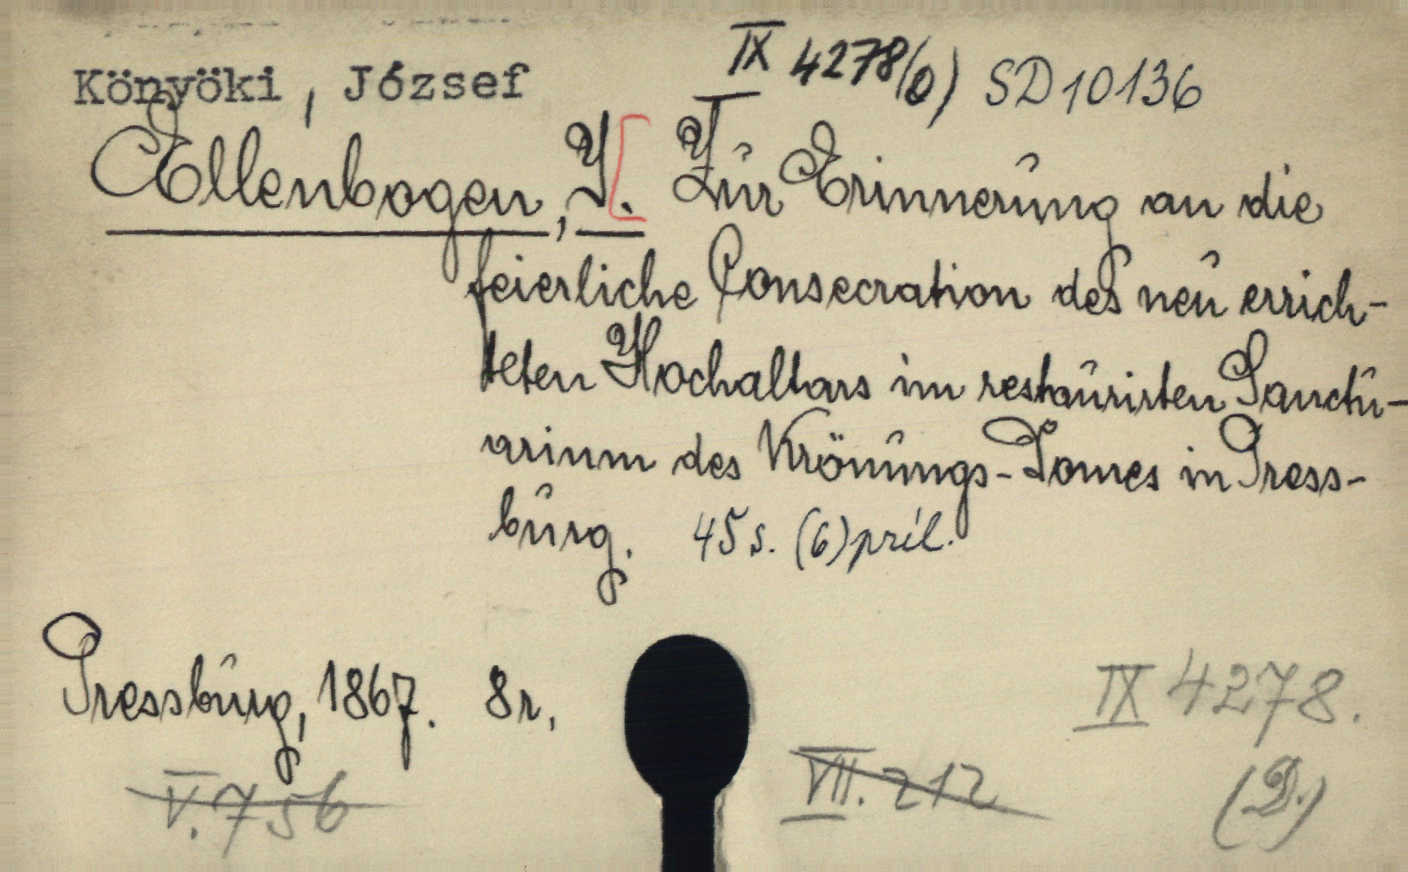 Könyöki, József
IX 4278/(D) SD10136
Ellenbogen, I. Zur Erinnerung an die
feierliche Consecration des neu errich-
teten Hochaltars im restaurirten Sanctu-
arium des Krönungs-Domes in Press-
burg. 45 s. (6) pril.
Pressburg, 1867. 8r.
IX 4278.
V. 756
VII. 212
(D.)